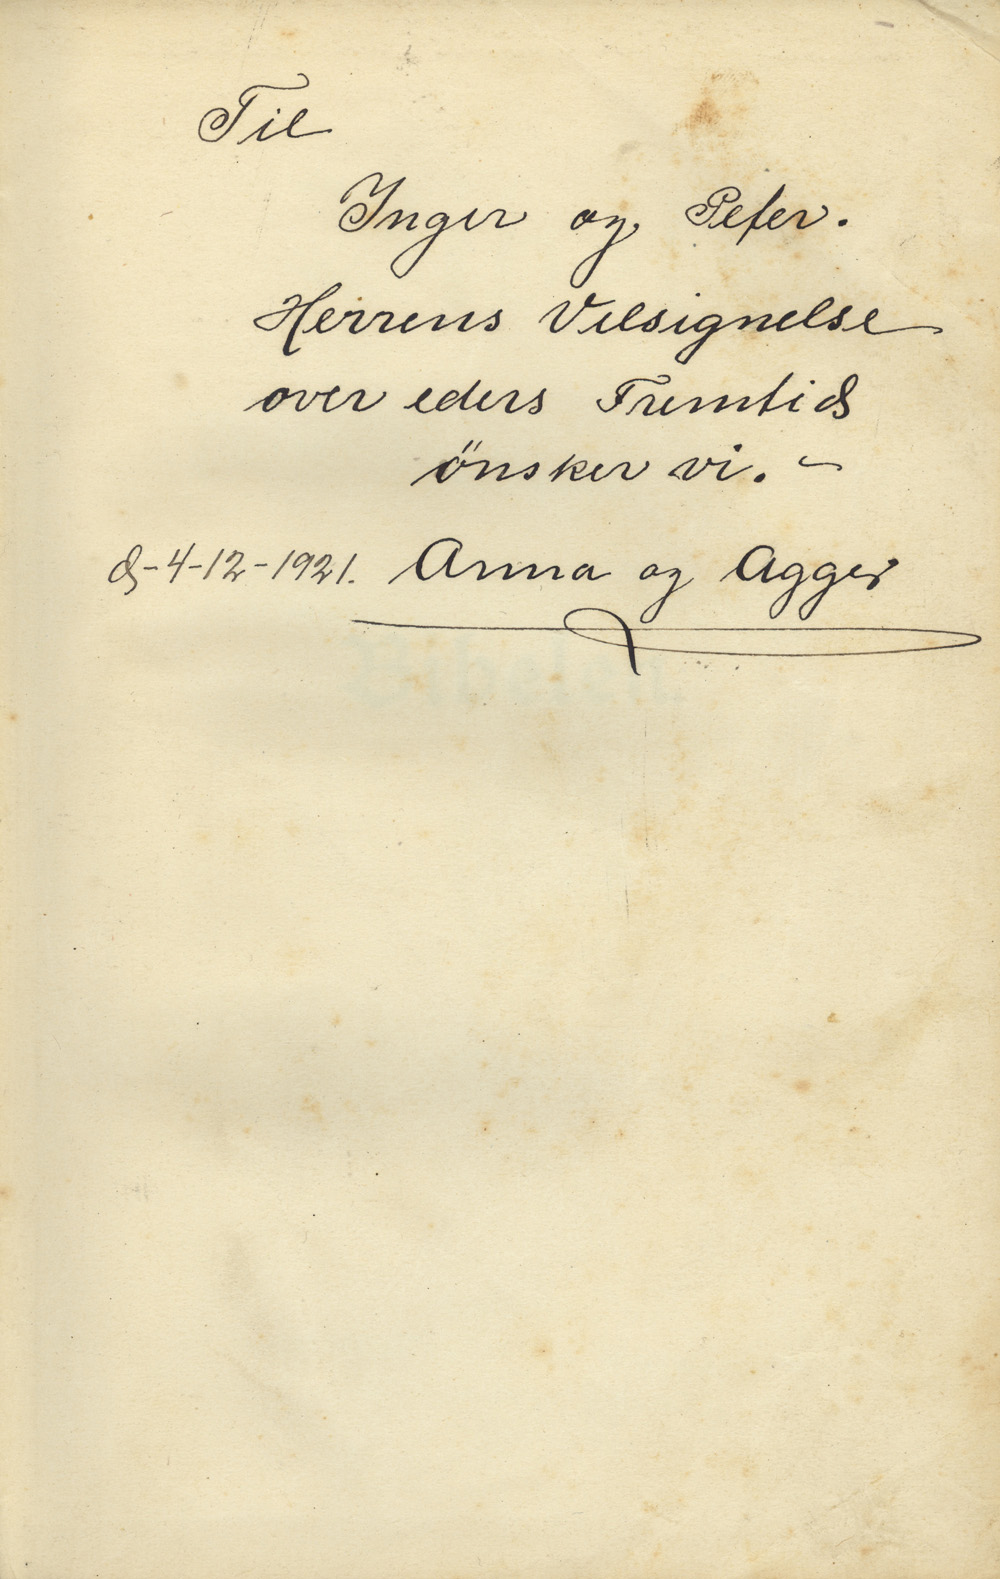 Til
Inger og Peter.
Herrens Velsignelse
over eders Fremtid
önsker vi. –
d-4-12-1921. Anna og Agger